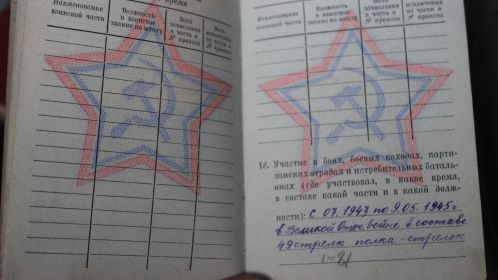 время
Наименование
воинской части
Должность
и воинское
звание по штату
Дата
зачисления
в часть и
№ приказа
Дата
исключения
из части и
№ приказа
Наименование
воинской части
Должность
и воинское
звание по штату
Дата
зачисления
в часть и
№ приказа
Дата
исключения
из части и
№ приказа
18. Участие в боях, боевых походах, парти-
занских отрядах и истребительных баталь-
онах (где участвовал, в какое время,
в составе какой части и в какой долж-
ности): С 07.1943 по 9.05.1945г
в Великой Отеч. войне в составе
49 стрелк. полка - стрелок